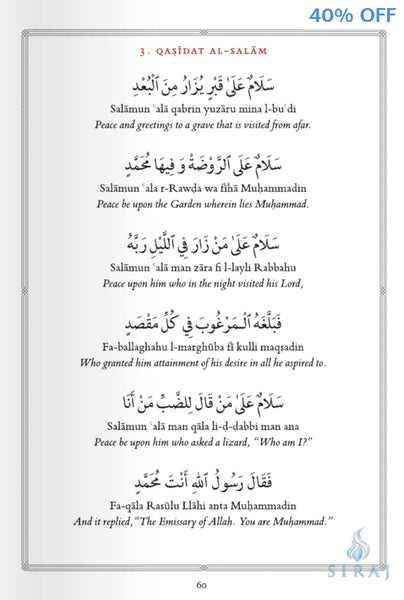 40% OFF
3. QAṢĪDAT AL-SALĀM
سَلَامٌ عَلَىٰ قَبْرٍ يُزَارُ مِنَ ٱلْبُعْدِ
Salāmun ʿalā qabrin yuzāru mina l-buʿdi
Peace and greetings to a grave that is visited from afar.
سَلَامٌ عَلَى ٱلرَّوْضَةِ وَ فِيهَا مُحَمَّدٍ
Salāmun ʿala r-Rawḍa wa fīhā Muḥammadin
Peace be upon the Garden wherein lies Muḥammad.
سَلَامٌ عَلَىٰ مَنْ زَارَ فِي ٱللَّيْلِ رَبَّهُ
Salāmun ʿalā man zāra fi l-layli Rabbahu
Peace upon him who in the night visited his Lord,
فَبَلَّغَهُ ٱلْمَرْغُوبَ فِي كُلِّ مَقْصَدٍ
Fa-ballaghahu l-marghūba fī kulli maqṣadin
Who granted him attainment of his desire in all he aspired to.
سَلَامٌ عَلَىٰ مَنْ قَالَ لِلضَّبِّ مَنْ أَنَا
Salāmun ʿalā man qāla li-ḍ-ḍabbi man ana
Peace be upon him who asked a lizard, “Who am I?”
فَقَالَ رَسُولُ ٱللهِ أَنْتَ مُحَمَّدٍ
Fa-qāla Rasūlu Llāhi anta Muḥammadin
And it replied, “The Emissary of Allah. You are Muḥammad.”
60
SIRAJ